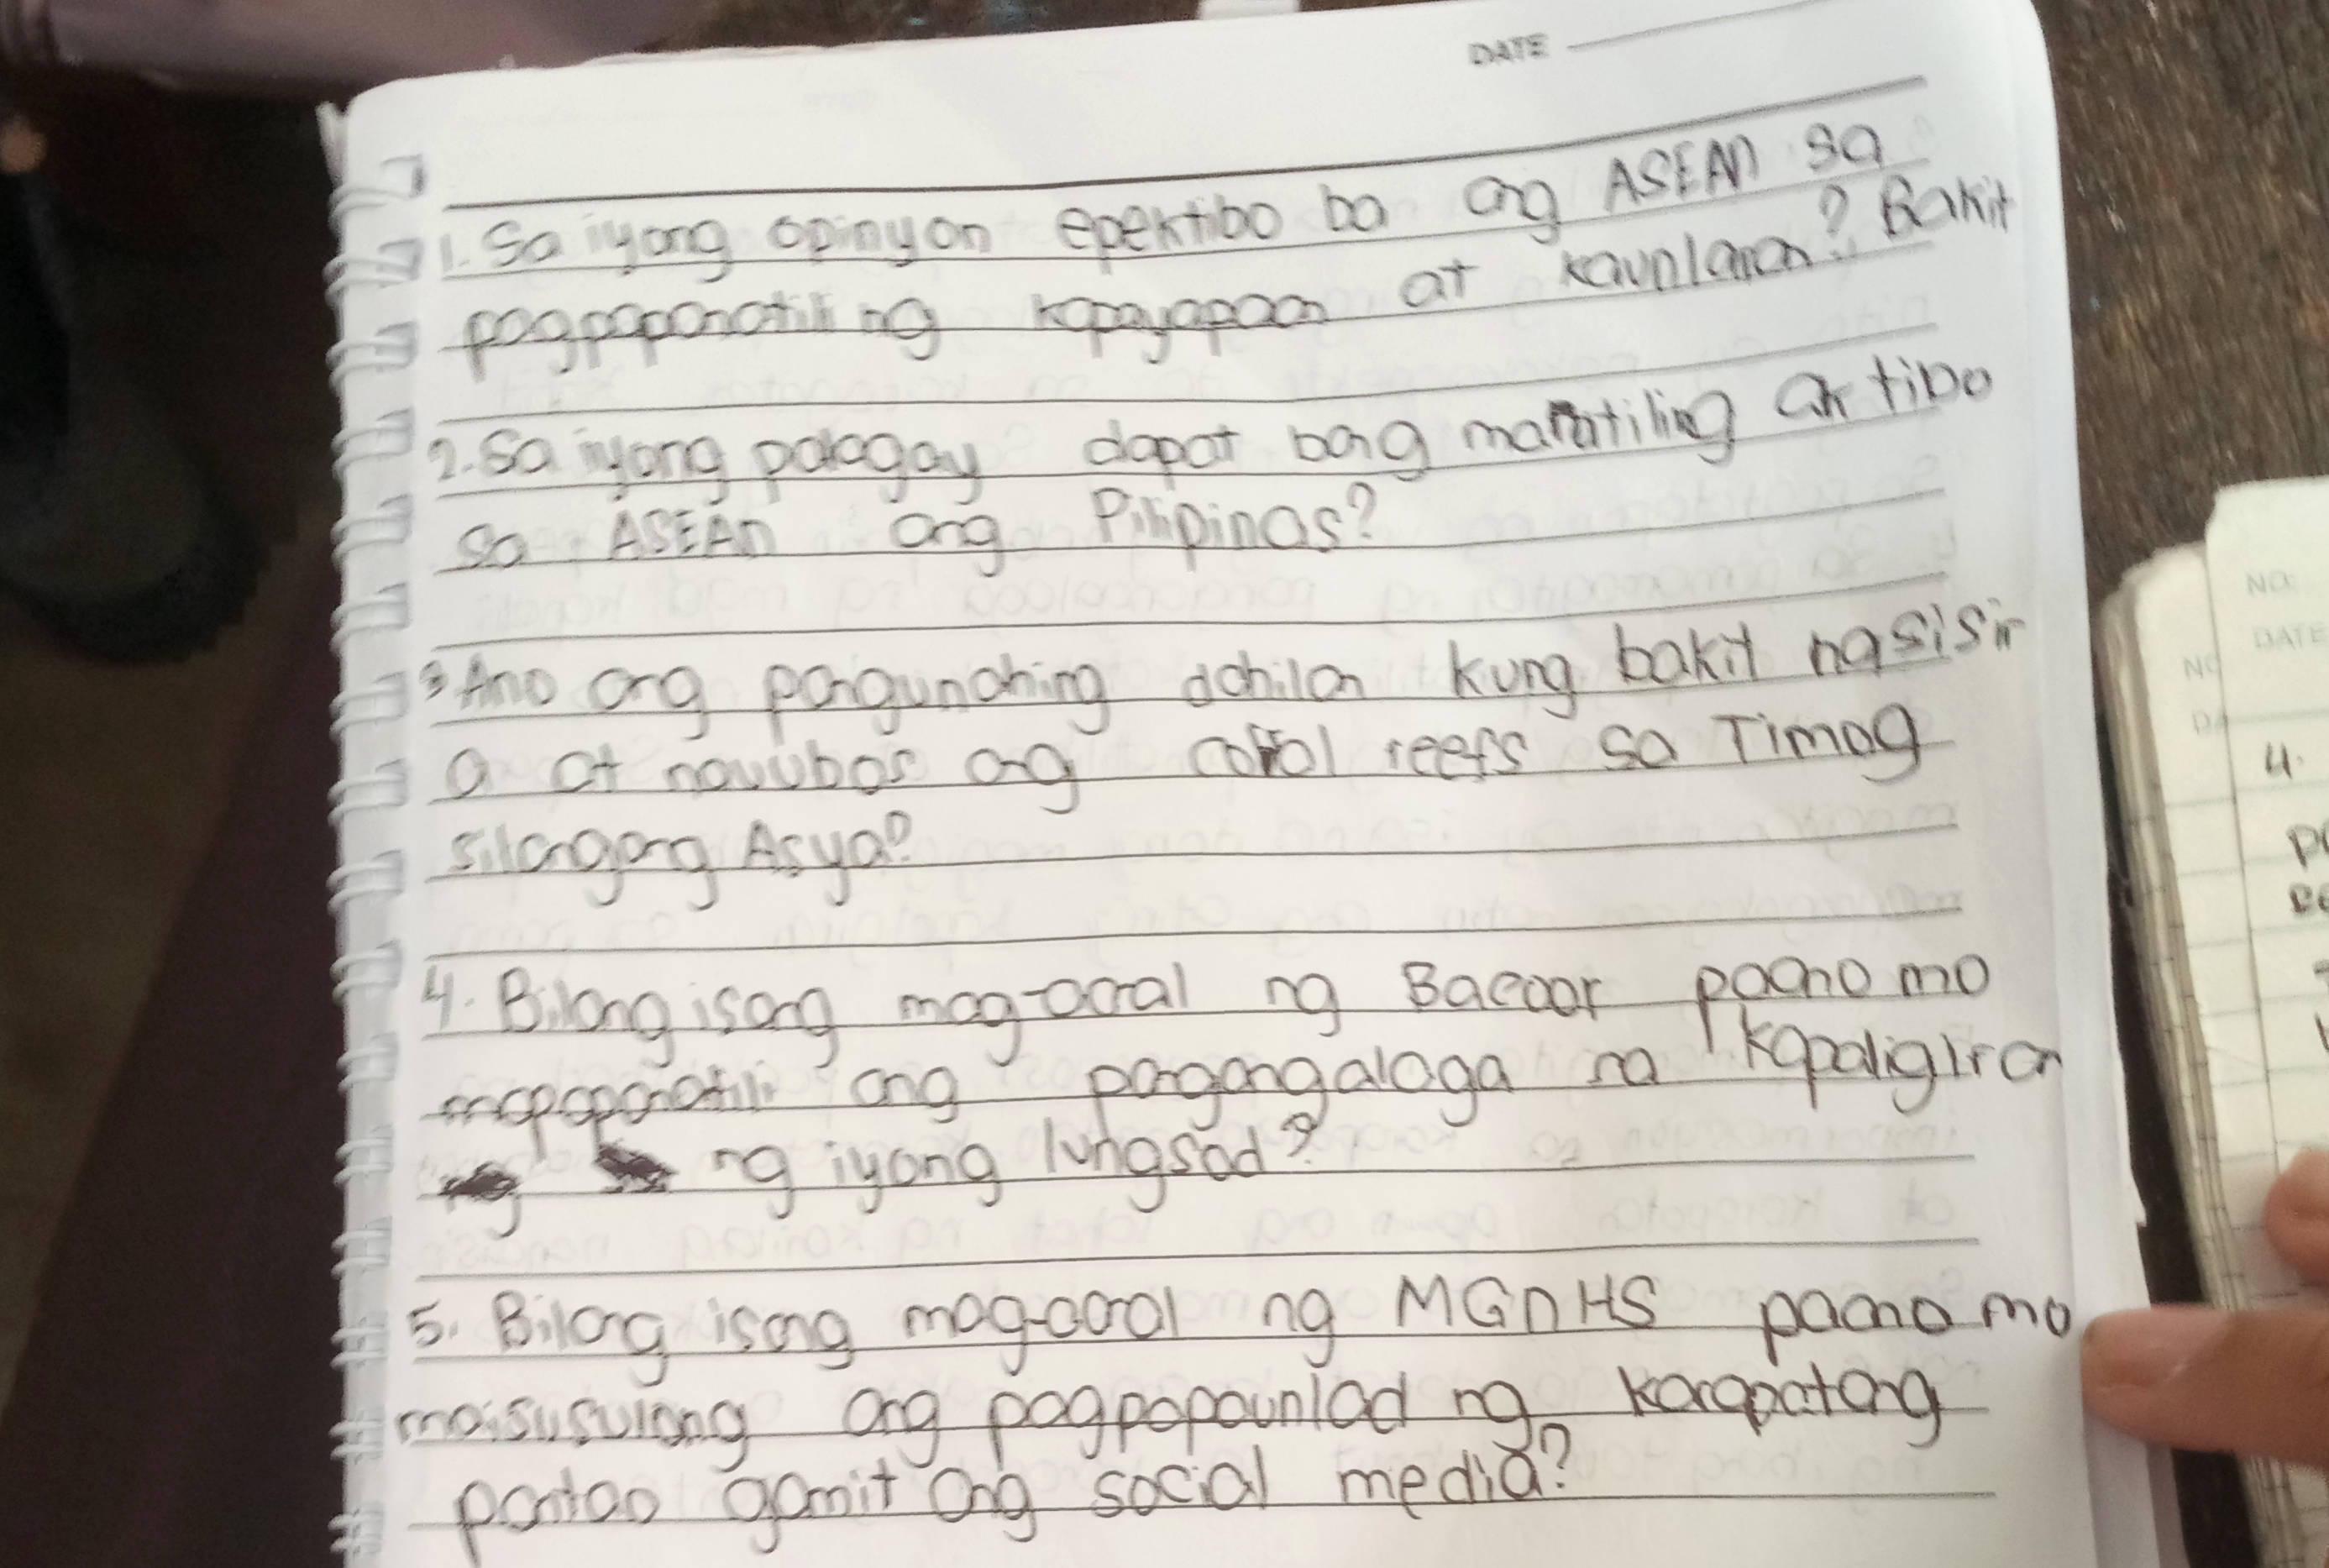 DATE
1. Sa iyong opinyon epektibo ba ang ASEAN sa
pagpapanatili ng kapayapaan at kaunlaran? Bakit
2. Sa iyong palagay dapat bang manatiling aktibo
sa ASEAN ang Pilipinas?
3 Ano ang pangunahing dahilan kung bakit nasisir
a at nauubos ang coral reefs sa Timog
silangang Asya?
4. Bilang isang mag-aaral ng Bacoor paano mo
mapapanatili ang pangangalaga na kapaligiran
ng iyong lungsod?
5. Bilang isang mag-aaral ng MGNHS paano mo
maisusulong ang pagpapaunlad ng karapatang
pantao gamit ang social media?
NO:
DATE
NO
DA
4.